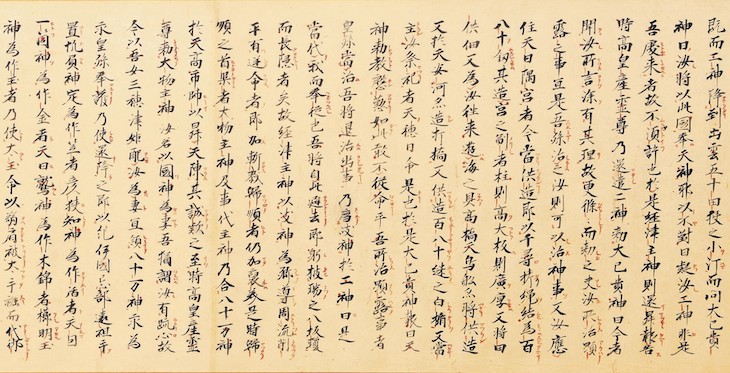 既而二神降到出雲五十田狹之小汀而問大己貴
神曰汝將以此國奉天神耶以不對曰疑汝二神非是
吾處來者故不須許也於是經津主神則還昇報告
時高皇產靈尊乃還遣二神勅大己貴神曰今者
聞汝所言深有其理故更條而勅之夫汝所治顯
露之事宜是吾孫治之汝則可以治神事又汝應
住天日隅宮者今當供造即以千尋栲繩結為百
八十紐其造宮之制者柱則高大板則廣厚又將田
供佃又為汝往來遊海之具高橋天鳥船亦將供造
又於天安河亦造打橋又供造百八十縫之白楯又當
主汝祭祀者天穗日命是也於是大己貴神報曰天
神勅教慇懃如此敢不從命乎吾所治顯露事者
皇孫當治吾將退治幽事乃薦岐神於二神曰是
當代我而奉從也吾將自此避去即躬被瑞之八坂瓊
而長隱者矣故經津主神以岐神為鄉導周流削
平有逆命者即加斬戮歸順者仍加褒美是時歸
順之首渠者大物主神及事代主神乃合八十万神
於天高市帥以昇天陳其誠款之至時高皇產靈
尊勅大物主神汝若以國神為妻吾猶謂汝有疏心故
今以吾女三穗津姬配汝為妻宜領八十万神永為
皇孫奉護乃使還降之即以紀伊國忌部遠祖手
置帆負神定為作笠者彥狹知神為作盾者天目
一箇神為作金者天日鷲神為作木綿者櫛明玉
神為作玉者乃使太玉命以弱肩被太手繦而代御